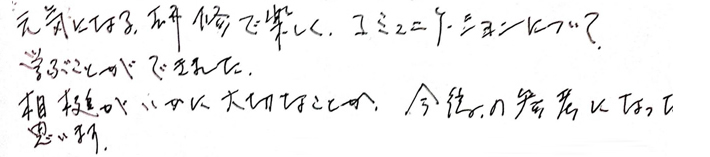 元気になる、研修で楽しく、コミュニケーションについて、
学ぶことができました。
相槌がいかに大切なことか、今後の参考になった
思います。